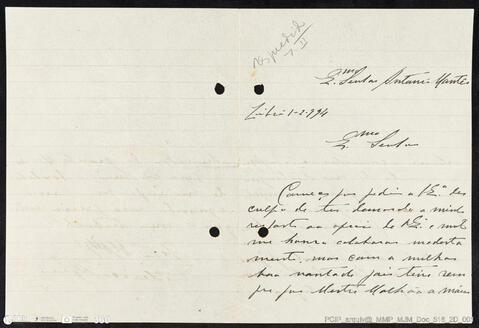 respondida
1-II
E.mo Senhor Antonio
Lisboa 1-2-994
E.mo Senhor
Começo por pedir a V.E.a des
culpa de ter demorado a minha
resposta ao oficio de V.E. e muito
me honra colaborar modesta
mente, mas com a melhor
boa vontade, pois terei sem
pre por Mestre Malhôa a maior
PCIP_arquiv@_MMP_MJM_Doc_516_2D_001